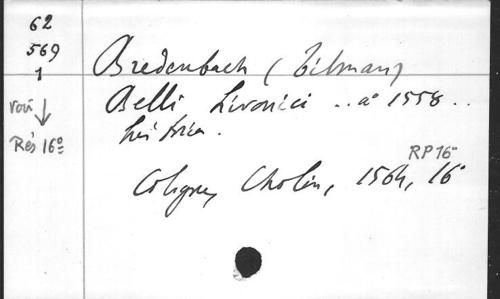 62
569
1
voir ↓
Rés 16°
Bredenbach (Tilman)
Belli Livonici .. a° 1558 ..
historia.
RP 16°
Cologne, Cholin, 1564, 16°